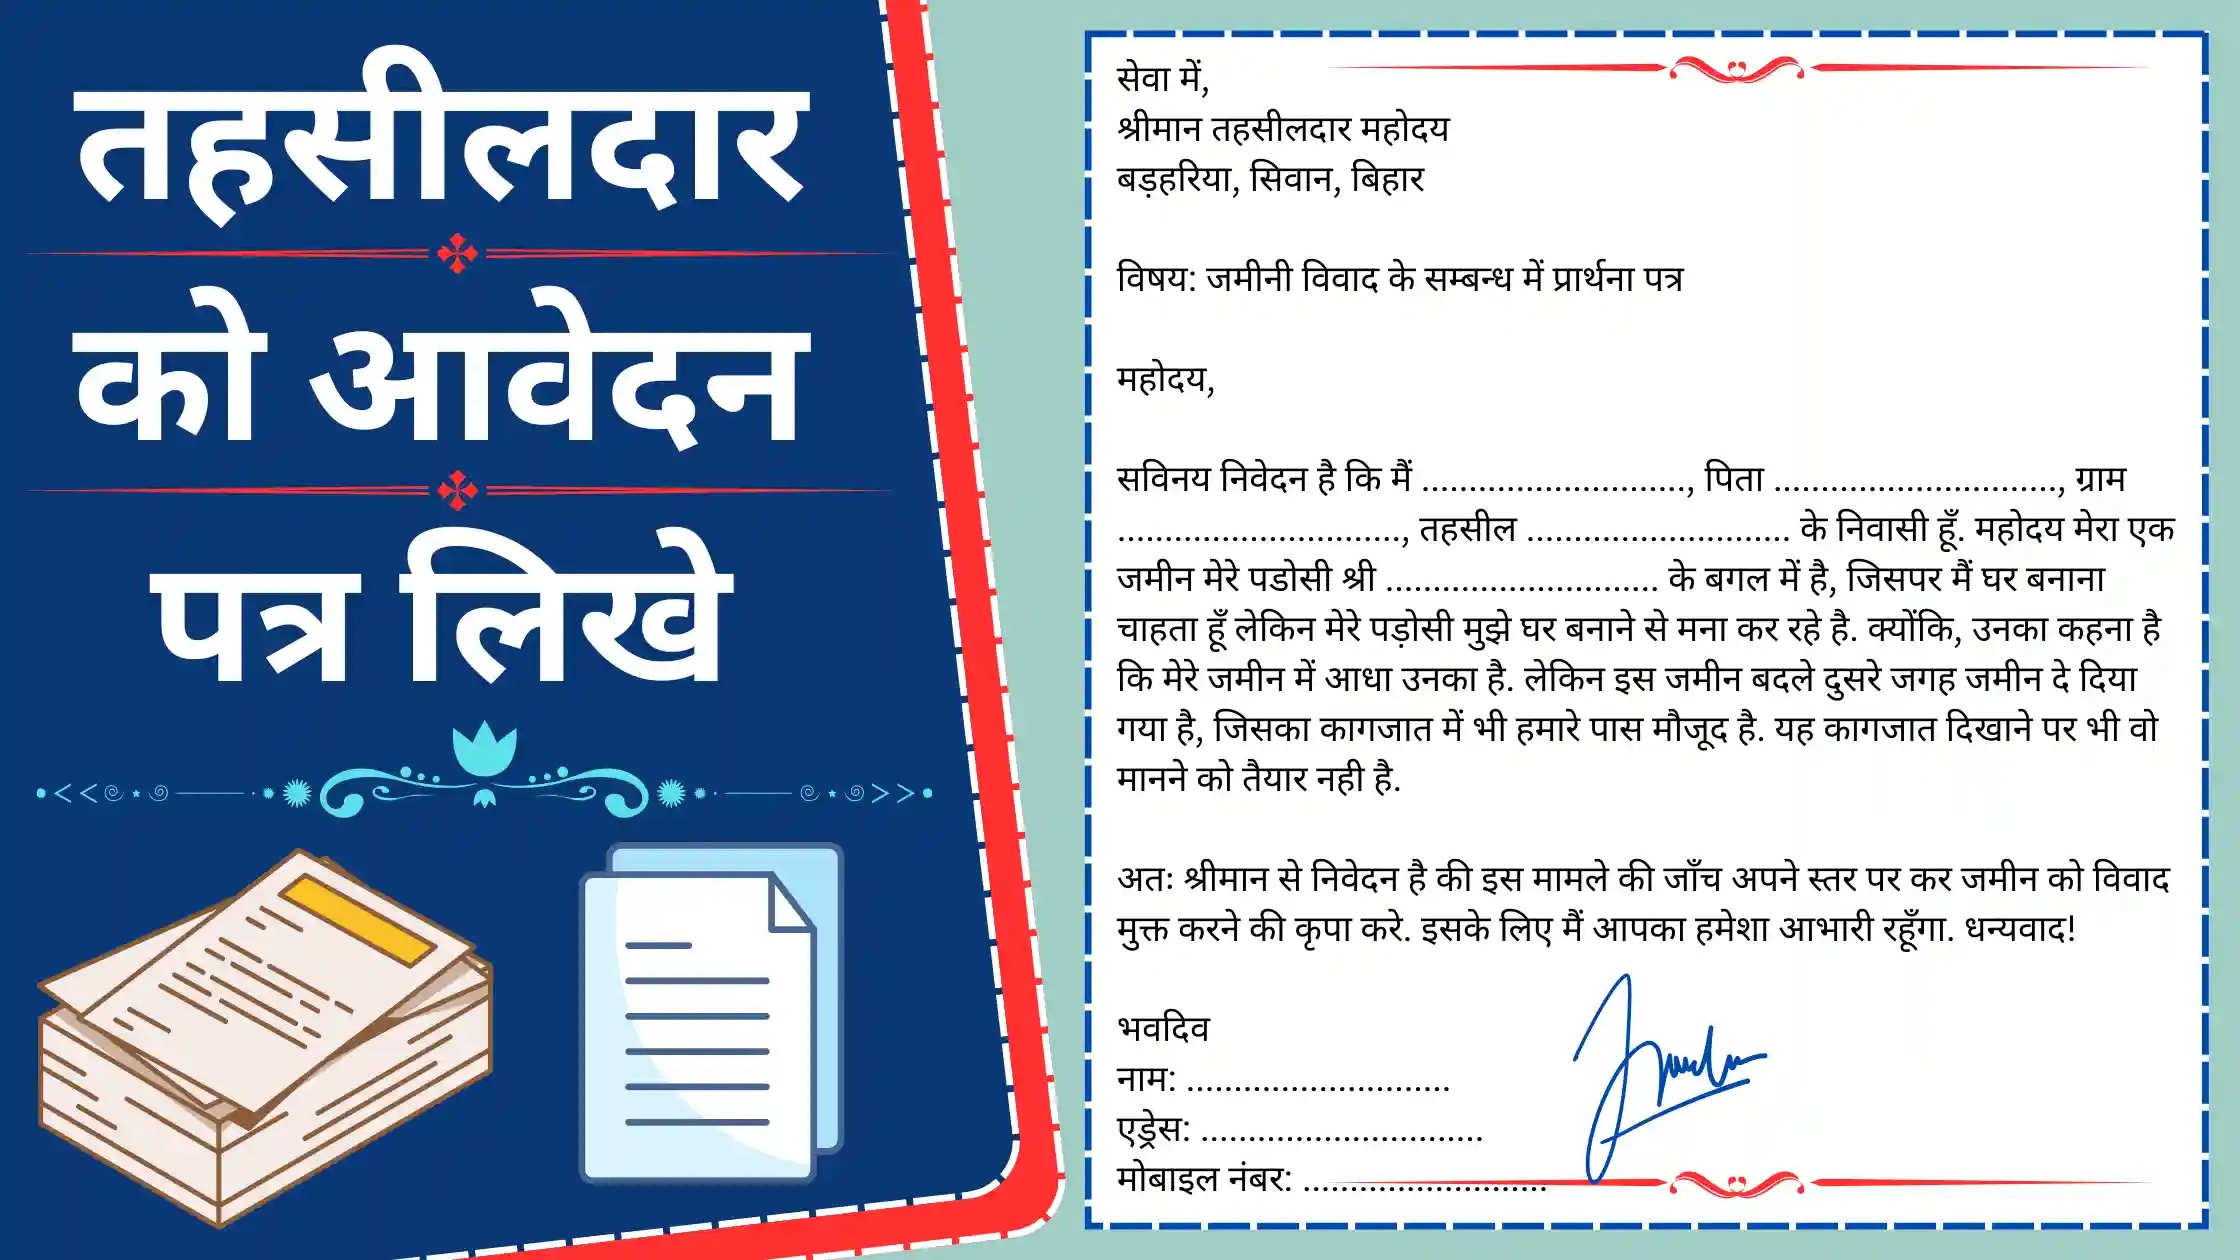 तहसीलदार
को आवेदन
पत्र लिखे
सेवा में,
श्रीमान तहसीलदार महोदय
बड़हरिया, सिवान, बिहार
विषय: जमीनी विवाद के सम्बन्ध में प्रार्थना पत्र
महोदय,
सविनय निवेदन है कि मैं ............................, पिता .............................., ग्राम
.............................., तहसील ............................ के निवासी हूँ. महोदय मेरा एक
जमीन मेरे पडोसी श्री ............................. के बगल में है, जिसपर मैं घर बनाना
चाहता हूँ लेकिन मेरे पड़ोसी मुझे घर बनाने से मना कर रहे है. क्योंकि, उनका कहना है
कि मेरे जमीन में आधा उनका है. लेकिन इस जमीन बदले दुसरे जगह जमीन दे दिया
गया है, जिसका कागजात में भी हमारे पास मौजूद है. यह कागजात दिखाने पर भी वो
मानने को तैयार नही है.
अतः श्रीमान से निवेदन है की इस मामले की जाँच अपने स्तर पर कर जमीन को विवाद
मुक्त करने की कृपा करे. इसके लिए मैं आपका हमेशा आभारी रहूँगा. धन्यवाद!
भवदिव
नाम: ............................
एड्रेस: ..............................
मोबाइल नंबर: ..........................